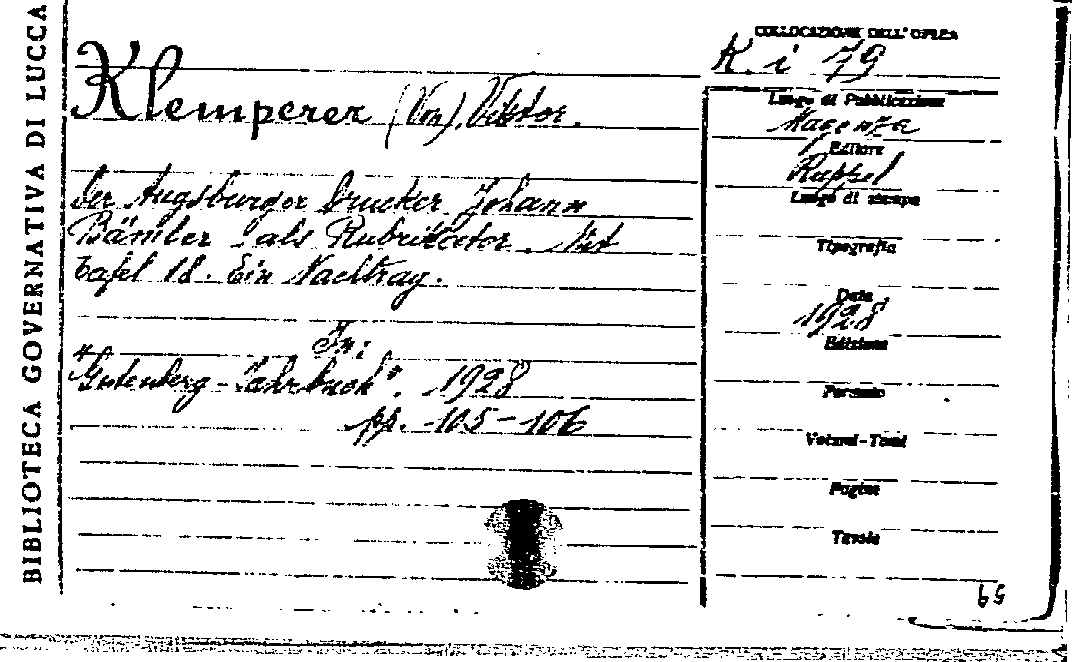 BIBLIOTECA GOVERNATIVA DI LUCCA
Klemperer (Von), Viktor.
Der Augsburger Drucker Johann
Bämler als Rubrikator. Mit
Tafel 18. Ein Nachtrag.
In:
"Gutenberg-Jahrbuch". 1928
pp. 105-106
COLLOCAZIONE DELL'OPERA
K. i 79
Luogo di Pubblicazione
Magonza
Editore
Ruppel
Luogo di stampa
Tipografia
Data
1928
Edizione
Formato
Volumi-Tomi
Pagine
Tavole